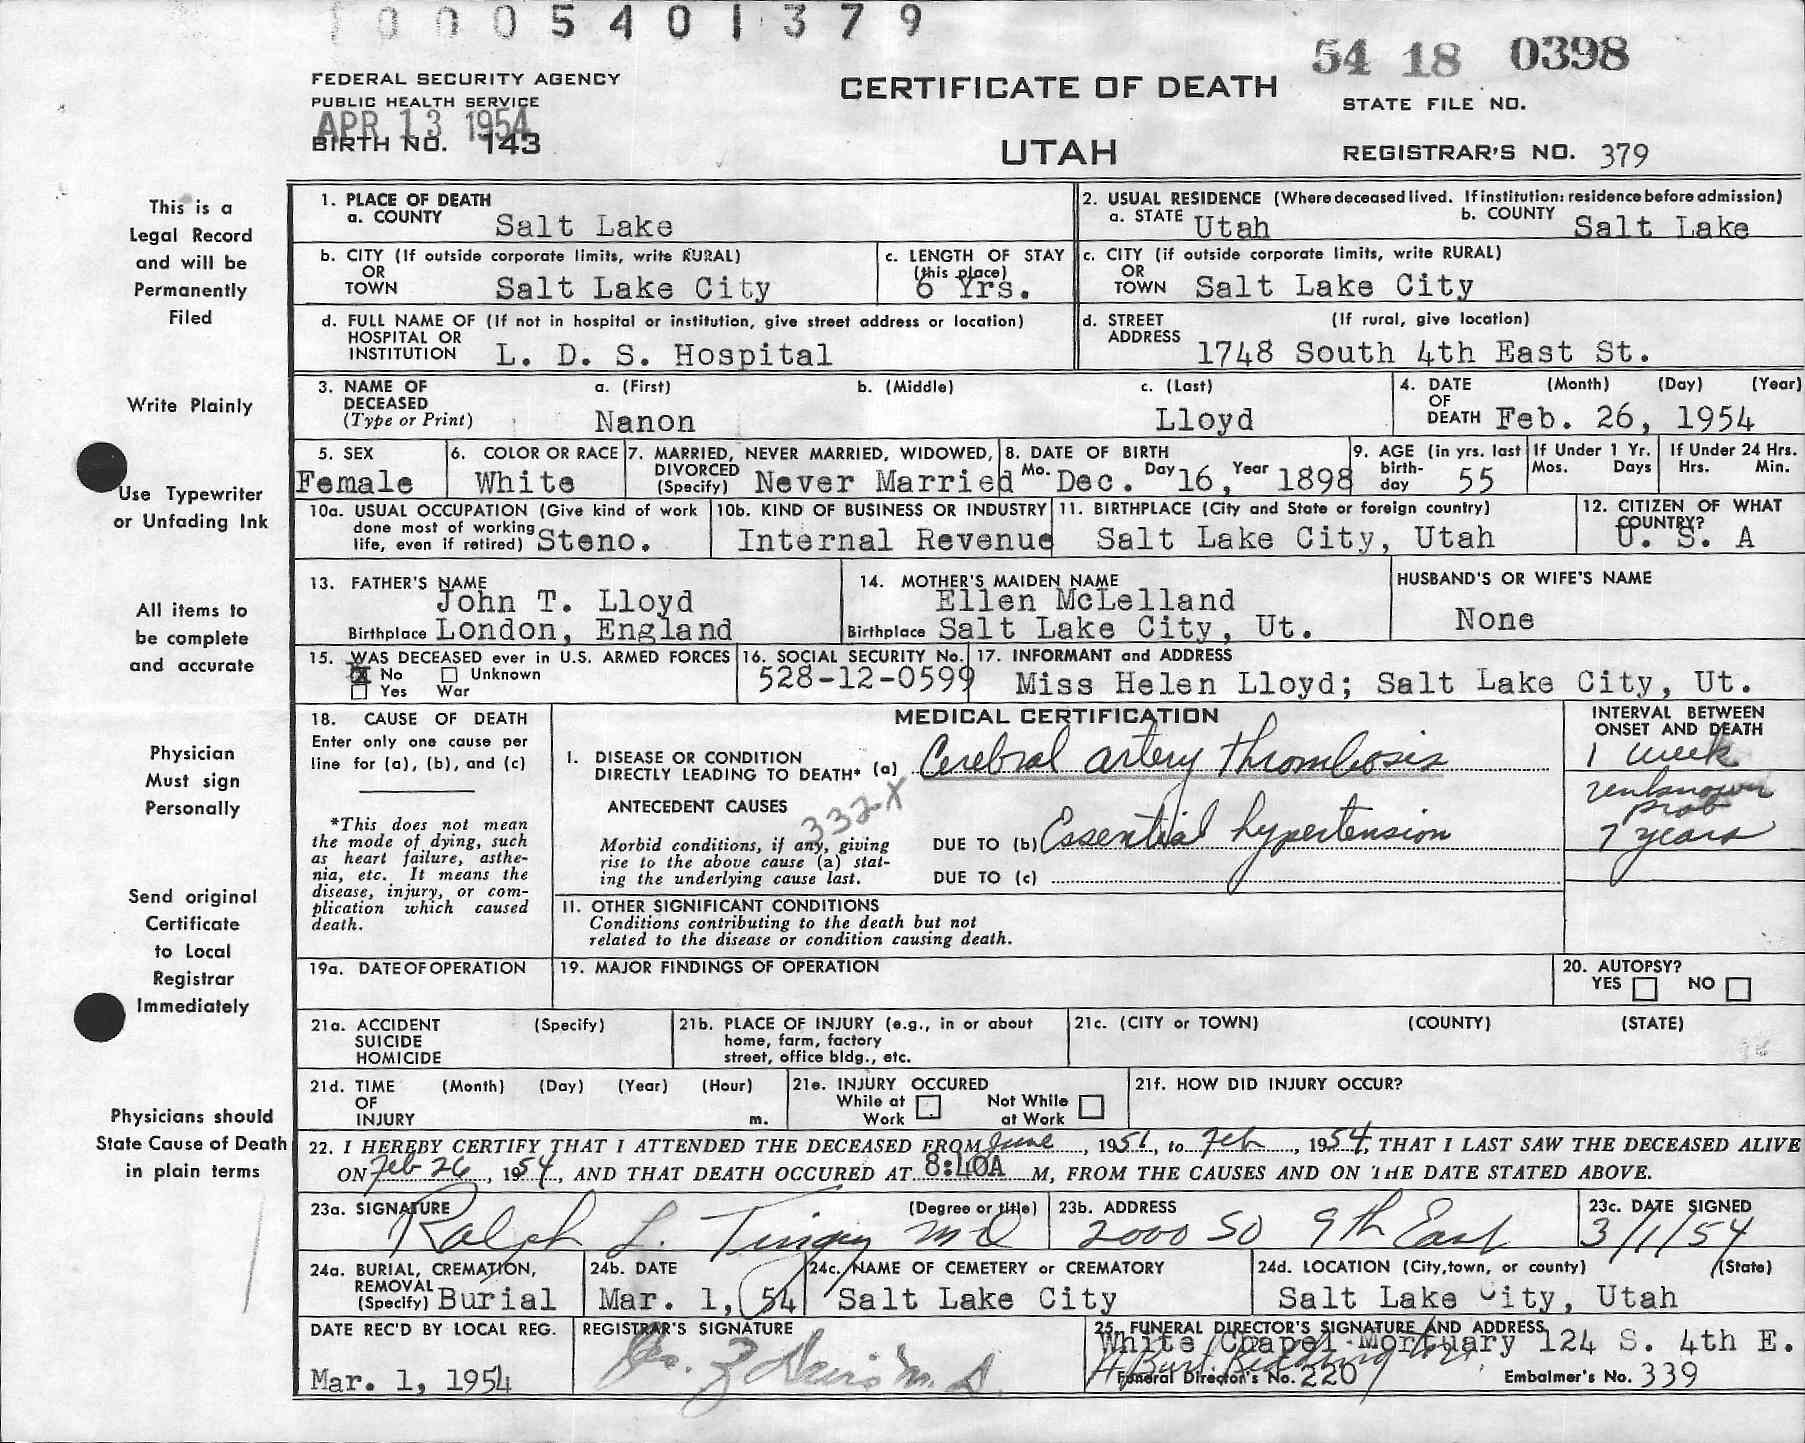 1 0 0 0 5 4 0 1 3 7 9
54 18 0398
FEDERAL SECURITY AGENCY
PUBLIC HEALTH SERVICE
APR 13 1954
BIRTH NO. 143
CERTIFICATE OF DEATH
UTAH
STATE FILE NO.
REGISTRAR'S NO. 379
This is a
Legal Record
and will be
Permanently
Filed
Write Plainly
Use Typewriter
or Unfading Ink
All items to
be complete
and accurate
Physician
Must sign
Personally
Send original
Certificate
to Local
Registrar
Immediately
Physicians should
State Cause of Death
in plain terms
1. PLACE OF DEATH
a. COUNTY Salt Lake
2. USUAL RESIDENCE (Where deceased lived. If institution: residence before admission)
a. STATE Utah b. COUNTY Salt Lake
b. CITY (If outside corporate limits, write RURAL)
OR
TOWN Salt Lake City
c. LENGTH OF STAY
(this place)
6 Yrs.
c. CITY (if outside corporate limits, write RURAL)
OR
TOWN Salt Lake City
d. FULL NAME OF (If not in hospital or institution, give street address or location)
HOSPITAL OR
INSTITUTION L. D. S. Hospital
d. STREET (If rural, give location)
ADDRESS
1748 South 4th East St.
3. NAME OF a. (First) b. (Middle) c. (Last)
DECEASED
(Type or Print) Nanon Lloyd
4. DATE (Month) (Day) (Year)
OF
DEATH Feb. 26, 1954
5. SEX
Female
6. COLOR OR RACE
White
7. MARRIED, NEVER MARRIED, WIDOWED,
DIVORCED
(Specify) Never Married
8. DATE OF BIRTH
Mo. Dec. Day 16, Year 1898
9. AGE (in yrs. last
birth-
day 55
If Under 1 Yr.
Mos. Days
If Under 24 Hrs.
Hrs. Min.
10a. USUAL OCCUPATION (Give kind of work
done most of working
life, even if retired) Steno.
10b. KIND OF BUSINESS OR INDUSTRY
Internal Revenue
11. BIRTHPLACE (City and State or foreign country)
Salt Lake City, Utah
12. CITIZEN OF WHAT
COUNTRY?
U. S. A
13. FATHER'S NAME
John T. Lloyd
Birthplace London, England
14. MOTHER'S MAIDEN NAME
Ellen McLelland
Birthplace Salt Lake City, Ut.
HUSBAND'S OR WIFE'S NAME
None
15. WAS DECEASED ever in U.S. ARMED FORCES
X No Unknown
Yes War
16. SOCIAL SECURITY No.
528-12-0599
17. INFORMANT and ADDRESS
Miss Helen Lloyd; Salt Lake City, Ut.
18. CAUSE OF DEATH
Enter only one cause per
line for (a), (b), and (c)
*This does not mean
the mode of dying, such
as heart failure, asthe-
nia, etc. It means the
disease, injury, or com-
plication which caused
death.
MEDICAL CERTIFICATION
INTERVAL BETWEEN
ONSET AND DEATH
I. DISEASE OR CONDITION
DIRECTLY LEADING TO DEATH* (a) Cerebral artery thrombosis
1 week
ANTECEDENT CAUSES
332-X
Morbid conditions, if any, giving
rise to the above cause (a) stat-
ing the underlying cause last.
DUE TO (b) Essential hypertension
unknown
prob
7 years
DUE TO (c)
11. OTHER SIGNIFICANT CONDITIONS
Conditions contributing to the death but not
related to the disease or condition causing death.
19a. DATE OF OPERATION
19. MAJOR FINDINGS OF OPERATION
20. AUTOPSY?
YES NO
21a. ACCIDENT (Specify)
SUICIDE
HOMICIDE
21b. PLACE OF INJURY (e.g., in or about
home, farm, factory
street, office bldg., etc.
21c. (CITY or TOWN) (COUNTY) (STATE)
21d. TIME (Month) (Day) (Year) (Hour)
OF
INJURY m.
21e. INJURY OCCURED
While at Work
Not While at Work
21f. HOW DID INJURY OCCUR?
22. I HEREBY CERTIFY THAT I ATTENDED THE DECEASED FROM June, 1951, to Feb, 1954, THAT I LAST SAW THE DECEASED ALIVE
ON Feb 26, 1954, AND THAT DEATH OCCURED AT 8:40A M, FROM THE CAUSES AND ON THE DATE STATED ABOVE.
23a. SIGNATURE (Degree or title)
Ralph L. Tingey MD
23b. ADDRESS
2000 SO 9th East
23c. DATE SIGNED
3/1/54
24a. BURIAL, CREMATION,
REMOVAL
(Specify) Burial
24b. DATE
Mar. 1, 54
24c. NAME OF CEMETERY or CREMATORY
Salt Lake City
24d. LOCATION (City, town, or county) (State)
Salt Lake City, Utah
DATE REC'D BY LOCAL REG.
Mar. 1, 1954
REGISTRAR'S SIGNATURE
M.D.
25. FUNERAL DIRECTOR'S SIGNATURE AND ADDRESS
White Chapel Mortuary 124 S. 4th E.
Funeral Director's No. 220
Embalmer's No. 339